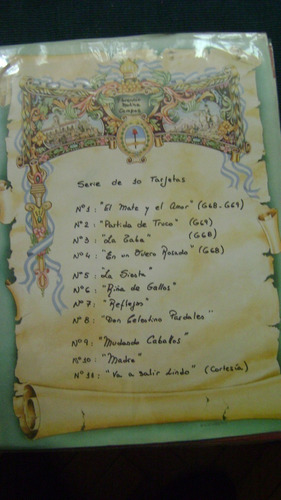 Serie de 10 Tarjetas
Nº1: "El Mate y el Amor" (G68-G69)
Nº2: "Partida de Truco" (G69)
Nº3: "La Caba" (G68)
Nº4: "En un Overo Rosado" (G68)
Nº5: "La Siesta"
Nº6: "Riña de Gallos"
Nº7: "Reflejos"
Nº8: "Don Celestino Pardales"
Nº9: "Mudando Caballos"
Nº10: "Madre"
Nº11: "Va a salir Lindo" (Cortesía)